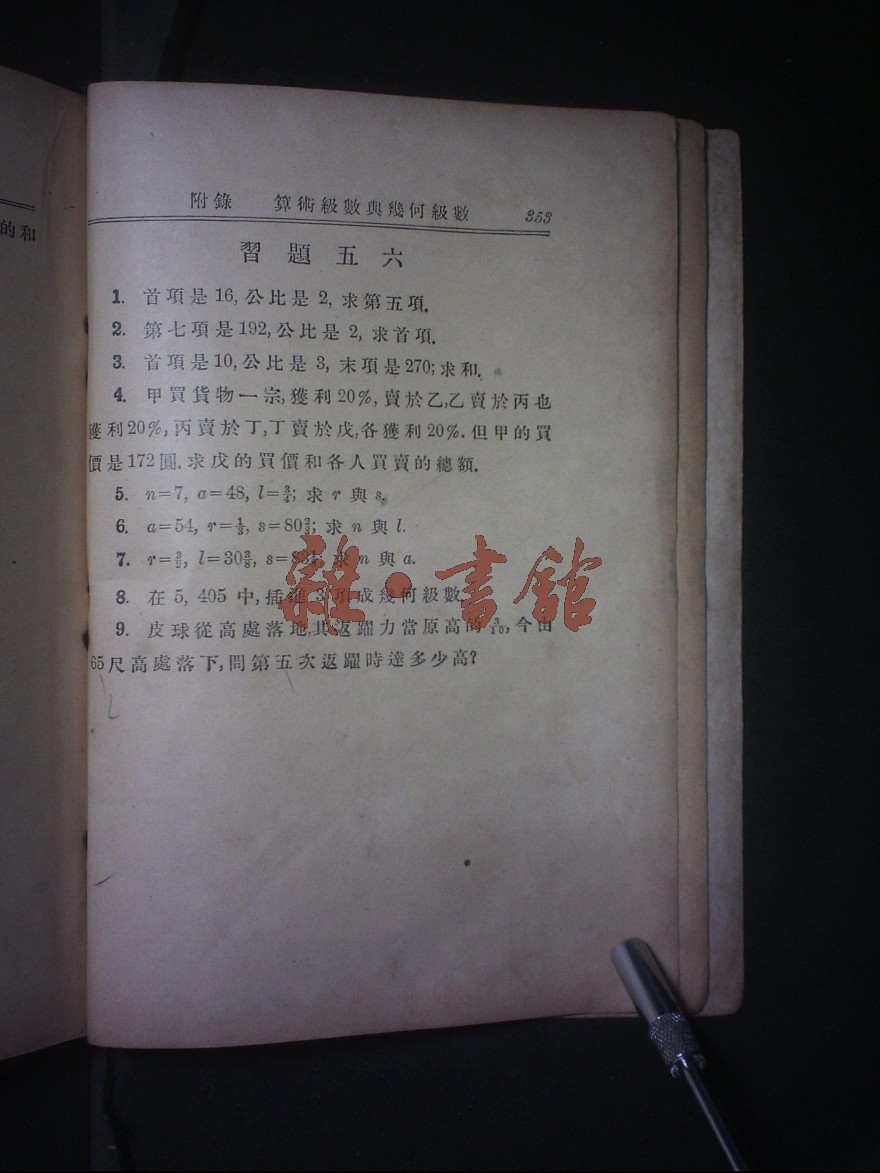 的和
附錄 算術級數與幾何級數 353
習題五六
1. 首項是16,公比是2,求第五項.
2. 第七項是192,公比是2,求首項.
3. 首項是10,公比是3,末項是270;求和.
4. 甲買貨物一宗,獲利20%,賣於乙,乙賣於丙也
獲利20%,丙賣於丁,丁賣於戊,各獲利20%.但甲的買
價是172圓.求戊的買價和各人買賣的總額.
5. n=7, a=48, l=¾; 求 r 與 s.
6. a=54, r=⅓, s=80⅔; 求 n 與 l.
7. r=3/2, l=30⅜, s=83; 求 n 與 a.
8. 在5, 405中,插進3項成幾何級數
9. 皮球從高處落地,其返躍力當原高的3/10,今由
65尺高處落下,問第五次返躍時達多少高?
雜·書館